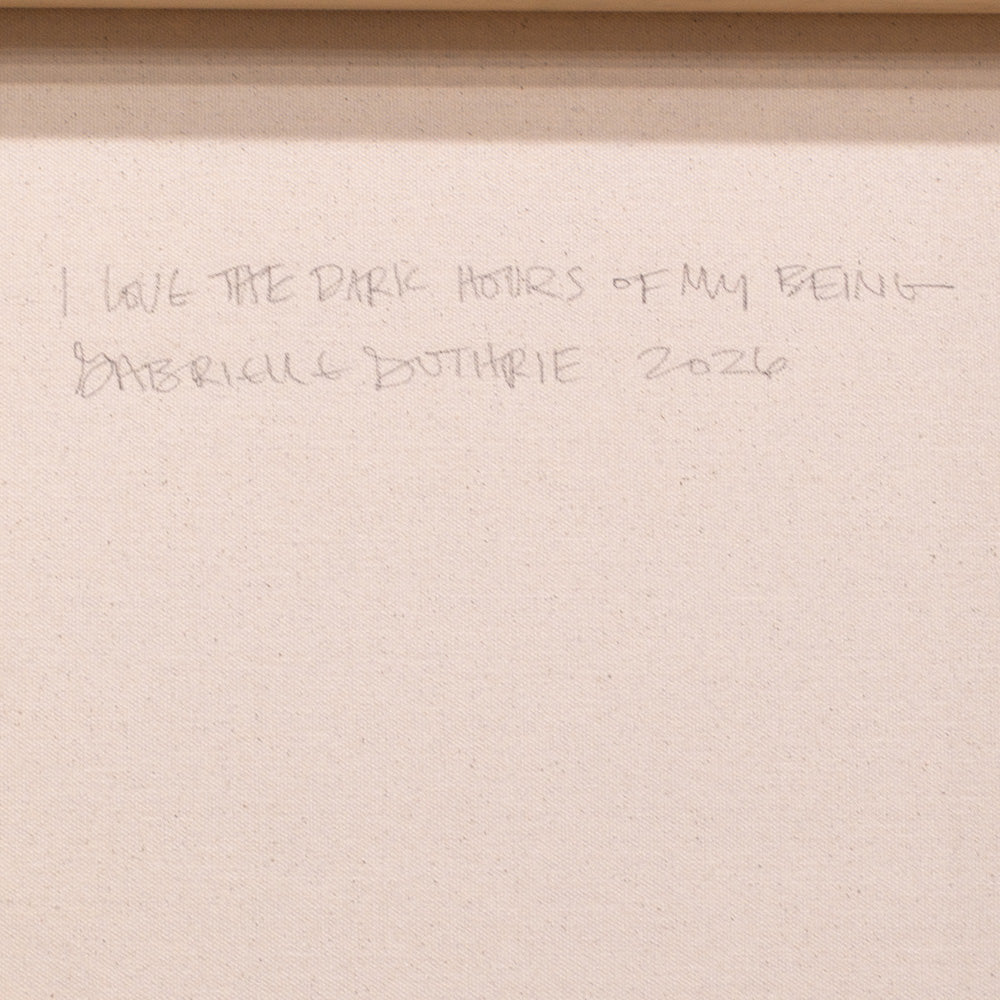 I LOVE THE DARK HOURS OF MY BEING
GABRIELLE GUTHRIE 2026